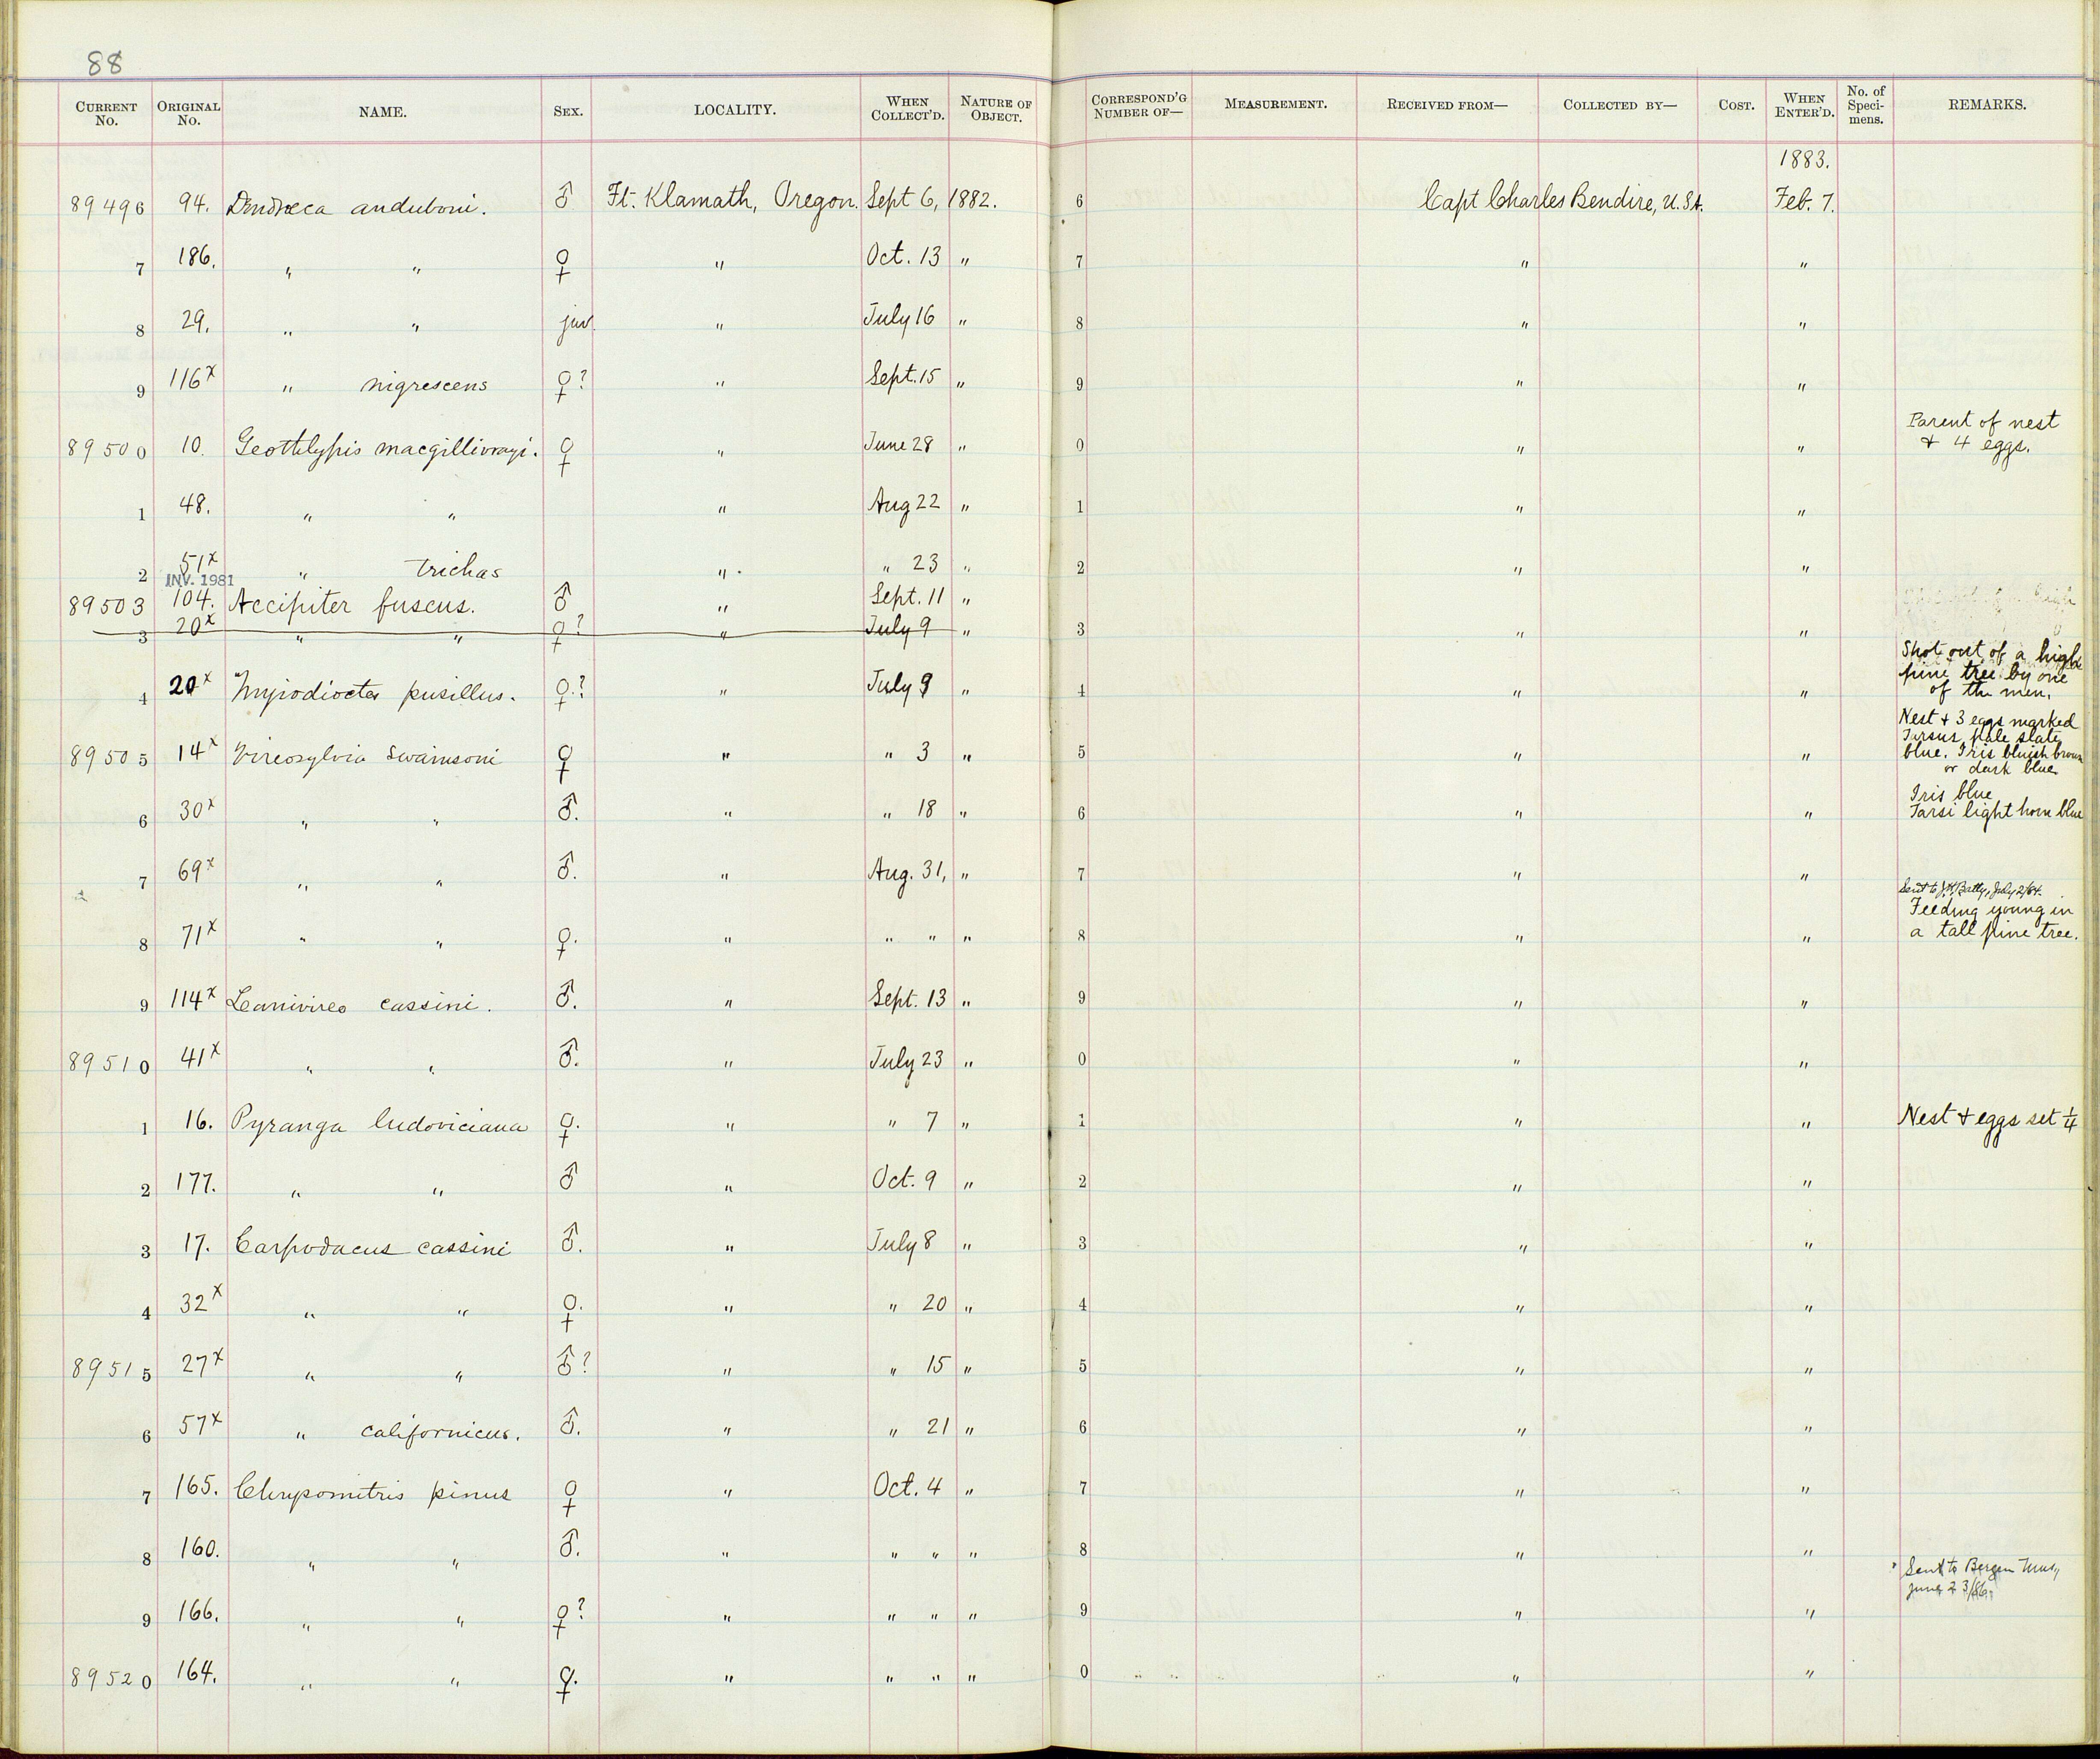 88
CURRENT No. ORIGINAL No. NAME. SEX. LOCALITY. WHEN COLLECT'D. NATURE OF OBJECT. CORRESPOND'G NUMBER OF— MEASUREMENT. RECEIVED FROM— COLLECTED BY— COST. WHEN ENTER'D. No. of Speci-mens. REMARKS.
1883.
89496 94. Dendroeca auduboni. ♂ Ft. Klamath, Oregon. Sept 6, 1882. 6 Capt Charles Bendire, U.S.A. Feb. 7.
7 186. " " ♀ " Oct. 13 " 7 " "
8 29. " " juv. " July 16 " 8 " "
9 116x " nigrescens ♀? " Sept. 15 " 9 " "
Parent of nest
89500 10. Geothlypis macgillivrayi. ♀ " June 28 " 0 " " & 4 eggs.
1 48. " " " Aug 22 " 1 " "
2 51x " trichas " " 23 " 2 " "
INV. 1981
89503 104. Accipiter fuscus. ♂ " Sept. 11 "
3 20x " " ♀? " July 9 " 3 " "
Shot out of a high
pine tree by one
4 20x Myiodioctes pusillus. ♀? " July 9 " 4 " " of the men.
Nest & 3 eggs marked
Tarsus pale slate
89505 14x Vireosylvia swainsoni ♀ " " 3 " 5 " " blue. Iris bluish brown
or dark blue
Iris blue
6 30x " " ♂. " " 18 " 6 " " Tarsi light horn blue
7 69x " " ♂. " Aug. 31, " 7 " "
Sent to J.H. Batty, July 2/84.
Feeding young in
8 71x " " ♀. " " " " 8 " " a tall pine tree.
9 114x Lanivireo cassini. ♂. " Sept. 13 " 9 " "
89510 41x " " ♂. " July 23 " 0 " "
1 16. Pyranga ludoviciana ♀. " " 7 " 1 " " Nest & eggs set 1/4
2 177. " " ♂ " Oct. 9 " 2 " "
3 17. Carpodacus cassini ♂. " July 8 " 3 " "
4 32x " " ♀. " " 20 " 4 " "
89515 27x " " ♂? " " 15 " 5 " "
6 57x " californicus. ♂. " " 21 " 6 " "
7 165. Chrysomitris pinus ♀ " Oct. 4 " 7 " "
8 160. " " ♂. " " " " 8 " "
Sent to Bergen Mus,
June 23/86.
9 166. " " ♀? " " " " 9 " "
89520 164. " " ♀. " " " " 0 " "